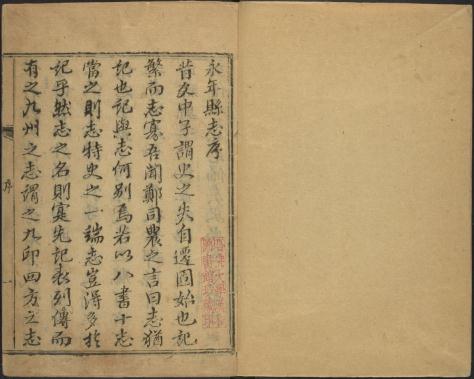 永年縣志序
昔文中子謂史之失自遷固始也記
繁而志寡吾聞鄭司農之言曰志猶
記也記與志何別焉若以八書十志
當之則志特史之一端志豈得多於
記乎然志之名則寔先記表列傳而
有之九州之志謂之九邱四方之志
序
一